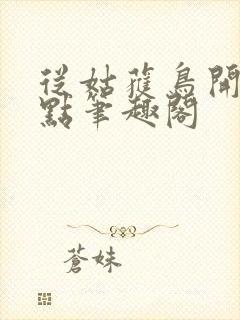 從姑蒦鳥開
點筆趣閣
蒼妹